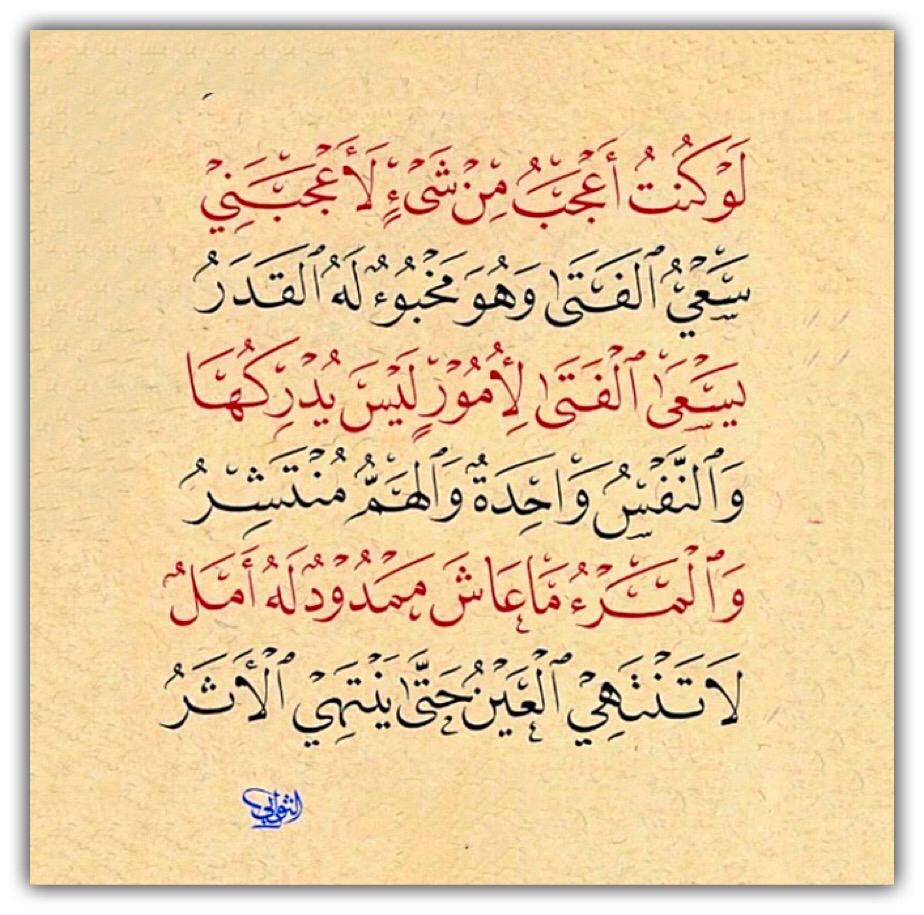 لَوْ كُنْتُ أَعْجَبُ مِنْ شَىْءٍ لَأَعْجَبَنِي
سَعْيُ ٱلْفَتَىٰ وَهُوَ مَخْبُوُءٌ لَهُ ٱلْقَدَرُ
يَسْعَىٰ ٱلْفَتَىٰ لِأُمُوْرٍ لَيْسَ يُدْرِكُهَا
وَٱلنَّفْسُ وَاحِدَةٌ وَٱلْهَمُّ مُنْتَشِرُ
وَٱلْمَرْءُ مَا عَاشَ مَمْدُوْدٌ لَهُ أَمَلٌ
لَا تَنْتَهِي ٱلْعَيْنُ حَتَّىٰ يَنْتَهِيْ ٱلْأَثَرُ